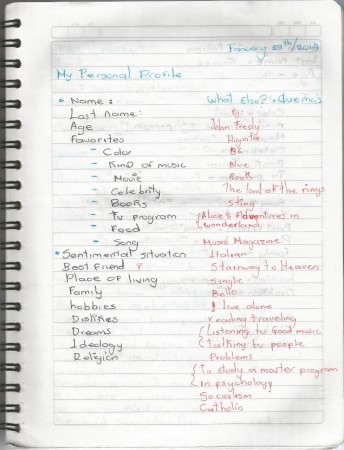 February /2014
My Personal Profile
Name: What Else?
Last name: Eg:
Age John Fredy
Favorites
- Color
- Kind of music Blue
- Movie Rock
- Celebrity The lord of the rings
- Books Sting
- Tv program Alice's Adventures in
- Food wonderland
- Song Music Magazine
Sentimental situation Italian
Best Friend ? Stairway to Heaven
Place of living Single
Family Bello
hobbies I live alone
Dislikes reading traveling
Dreams Listening to Good music
Ideology talking to people
Religion Problems
To study a master program
in psychology
Socialism
Catholic